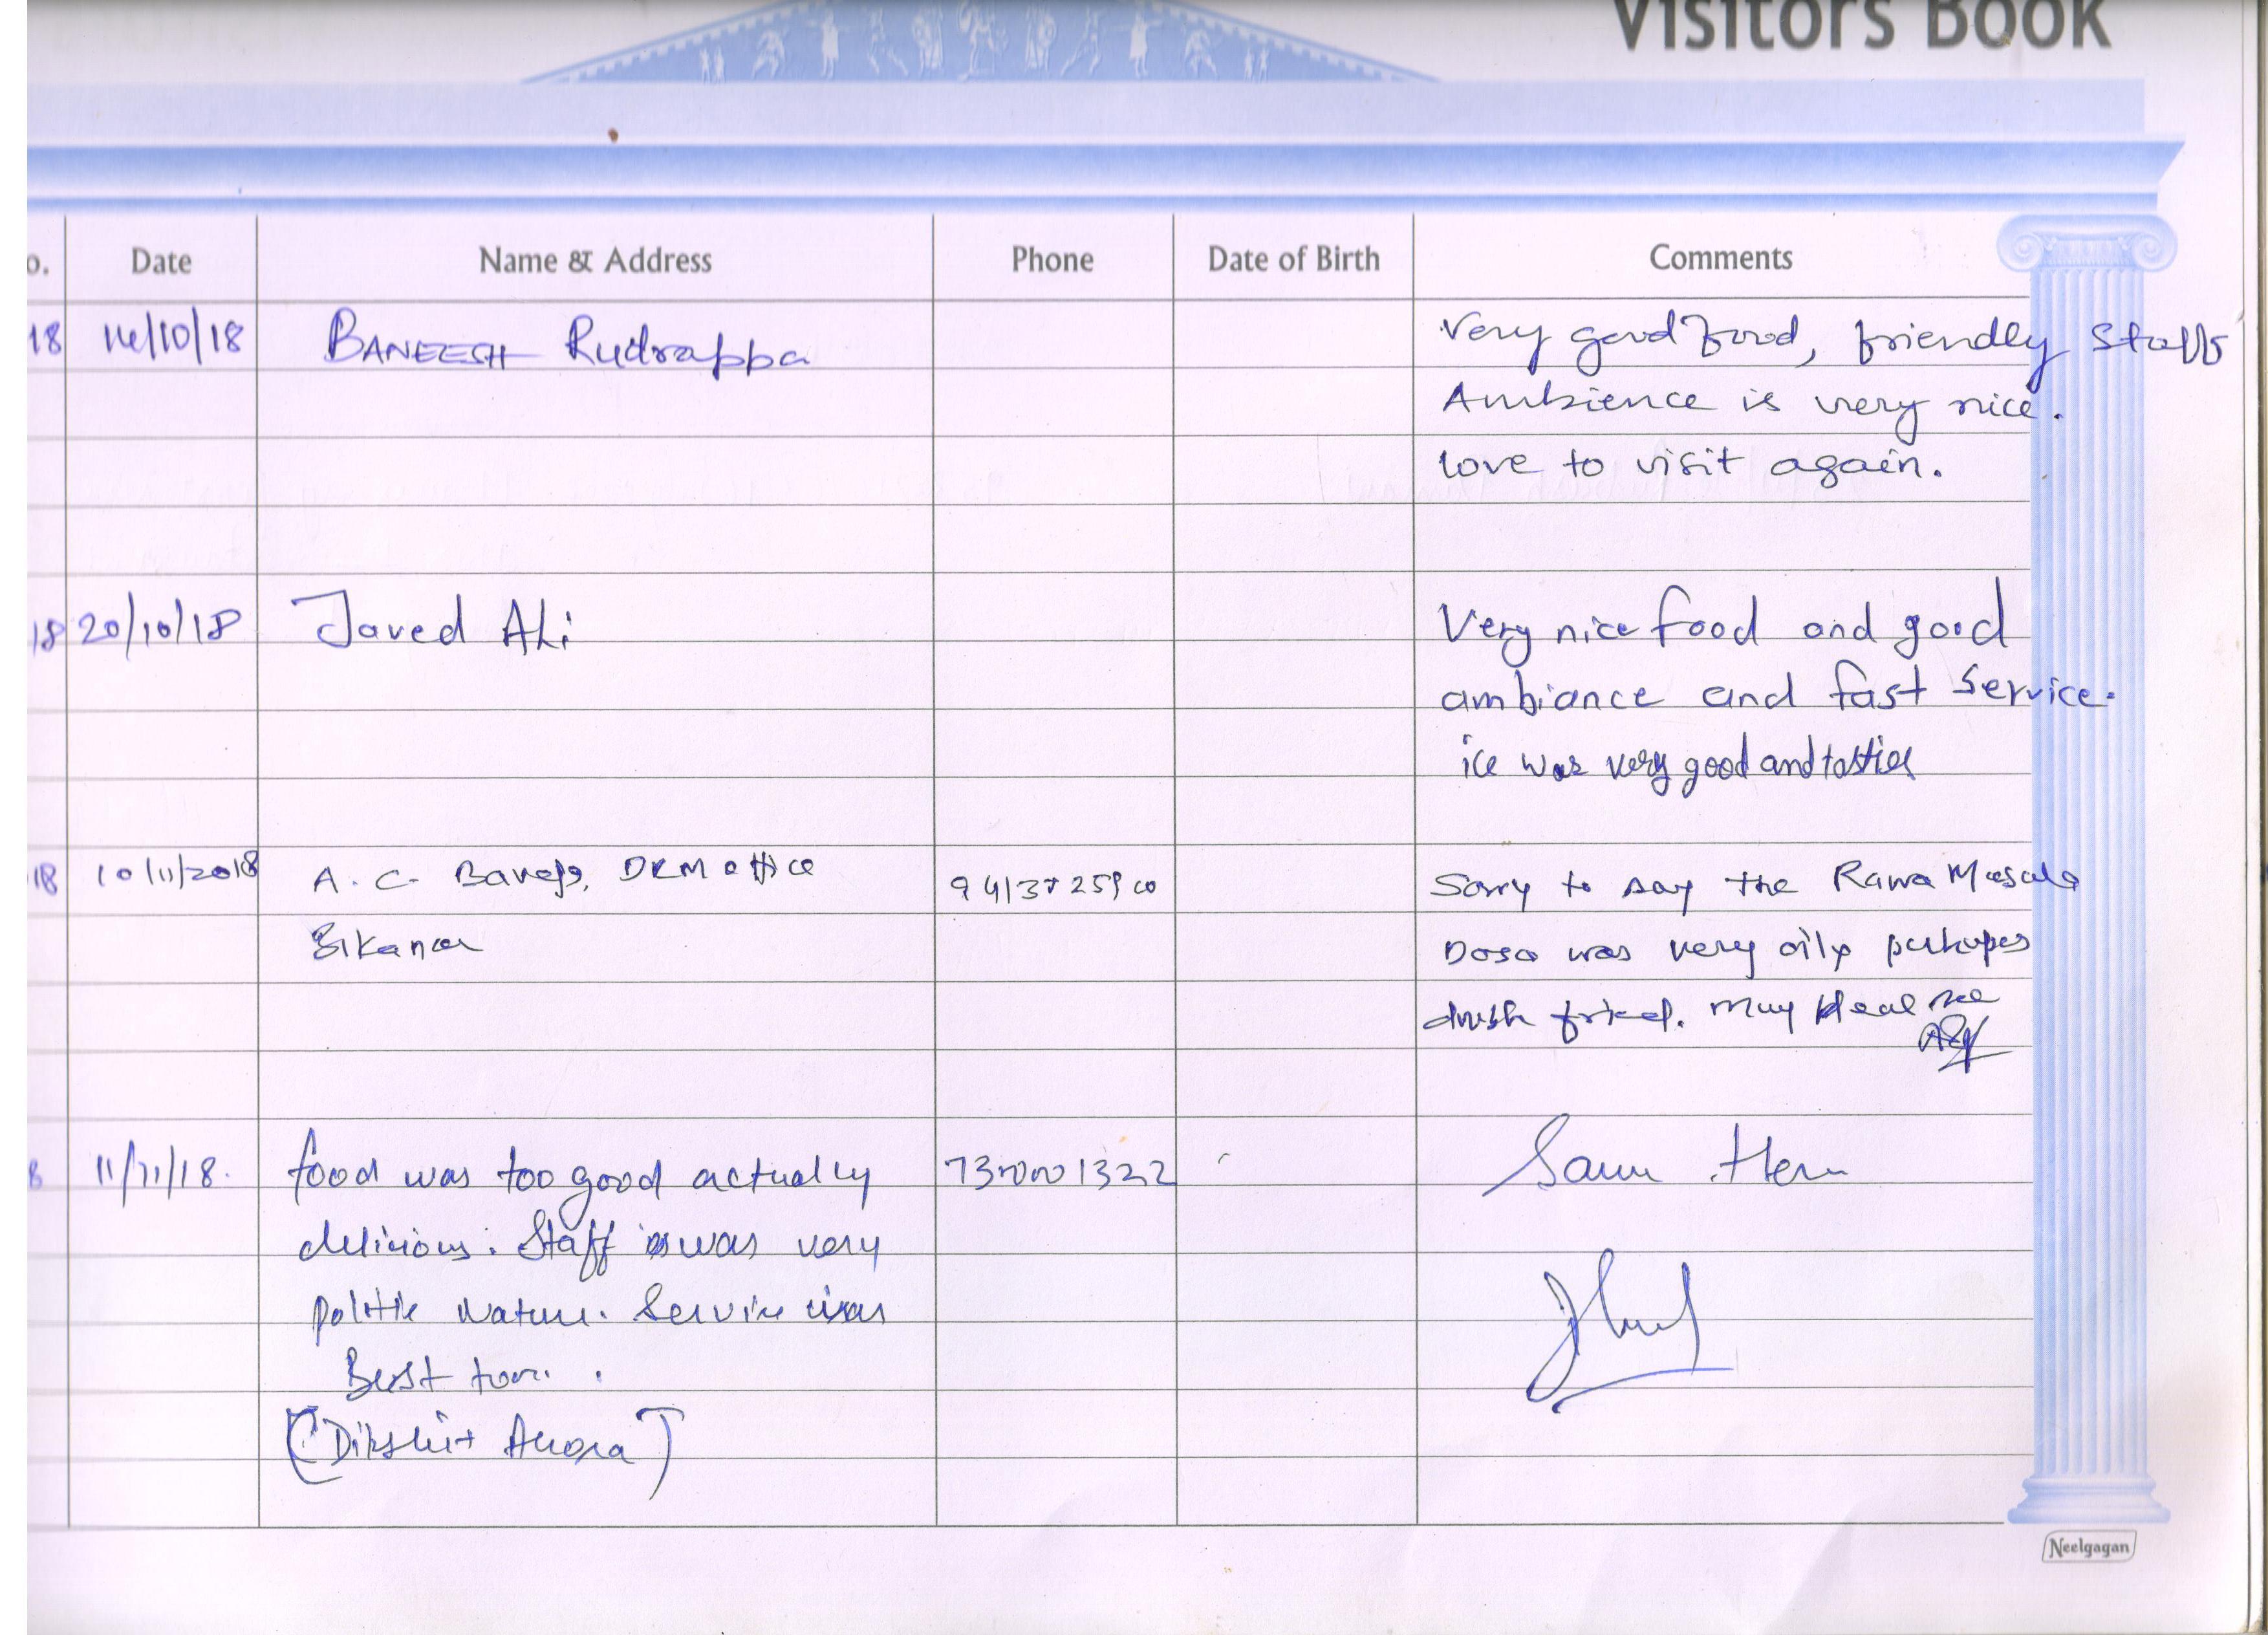 Visitors Book
o. Date Name & Address Phone Date of Birth Comments
18 14/10/18 BANEESH Rudrappa Very good food, friendly staff
Ambience is very nice.
love to visit again.
18 20/10/18 Javed ALi Very nice food and good
ambiance and fast service.
ice was very good and tasties
18 10/11/2018 A. C. Baveja, DRM office Sorry to say the Rawa Masala
Bikaner Dosa was very oily perhapes
fried.
8 11/11/18. food was too good actually
delicious. Staff was very
Nature. Service was
Best
[Dikshit Arora]
Neelgagan